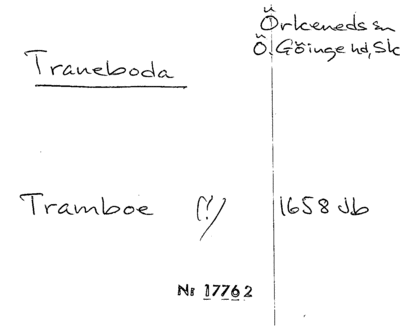 Örkeneds sn
Ö. Göinge hd, Sk
Traneboda
Tramboe (?) 1658 Jb
Nr 17762